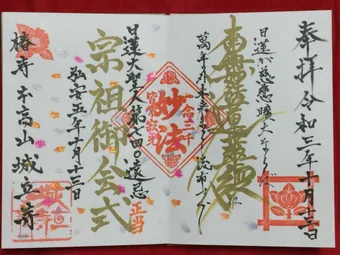 奉拝 令和三年十月十三日
日蓮が慈悲曠大ならば
南無妙法蓮華経
萬年の外未来までも流布すべし
妙法
日蓮大聖人第七四〇遠忌
正当
宗祖御会式
弘安五年十月十三日
椿寺 本高山 城立寺